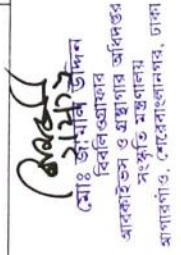 মোঃ জামাল উদ্দিন
বিবলিওগ্রাফার
আরকাইভস ও গ্রন্থাগার অধিদপ্তর
সংস্কৃতি মন্ত্রণালয়
আগারগাঁও, শেরেবাংলানগর, ঢাকা